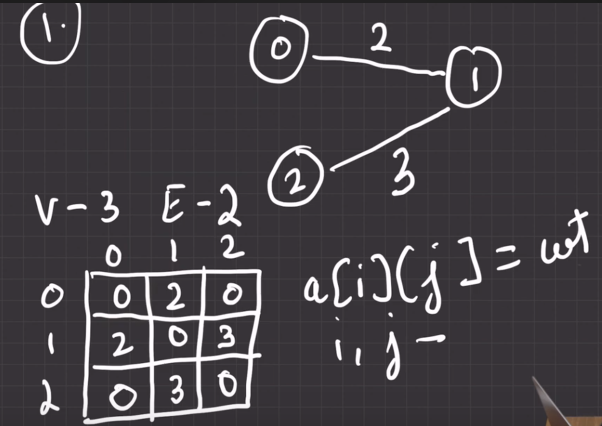 1.
0 2 1
2 3
V - 3 E - 2
0 1 2
0 0 2 0
1 2 0 3
2 0 3 0
a[i][j] = wt
i, j -